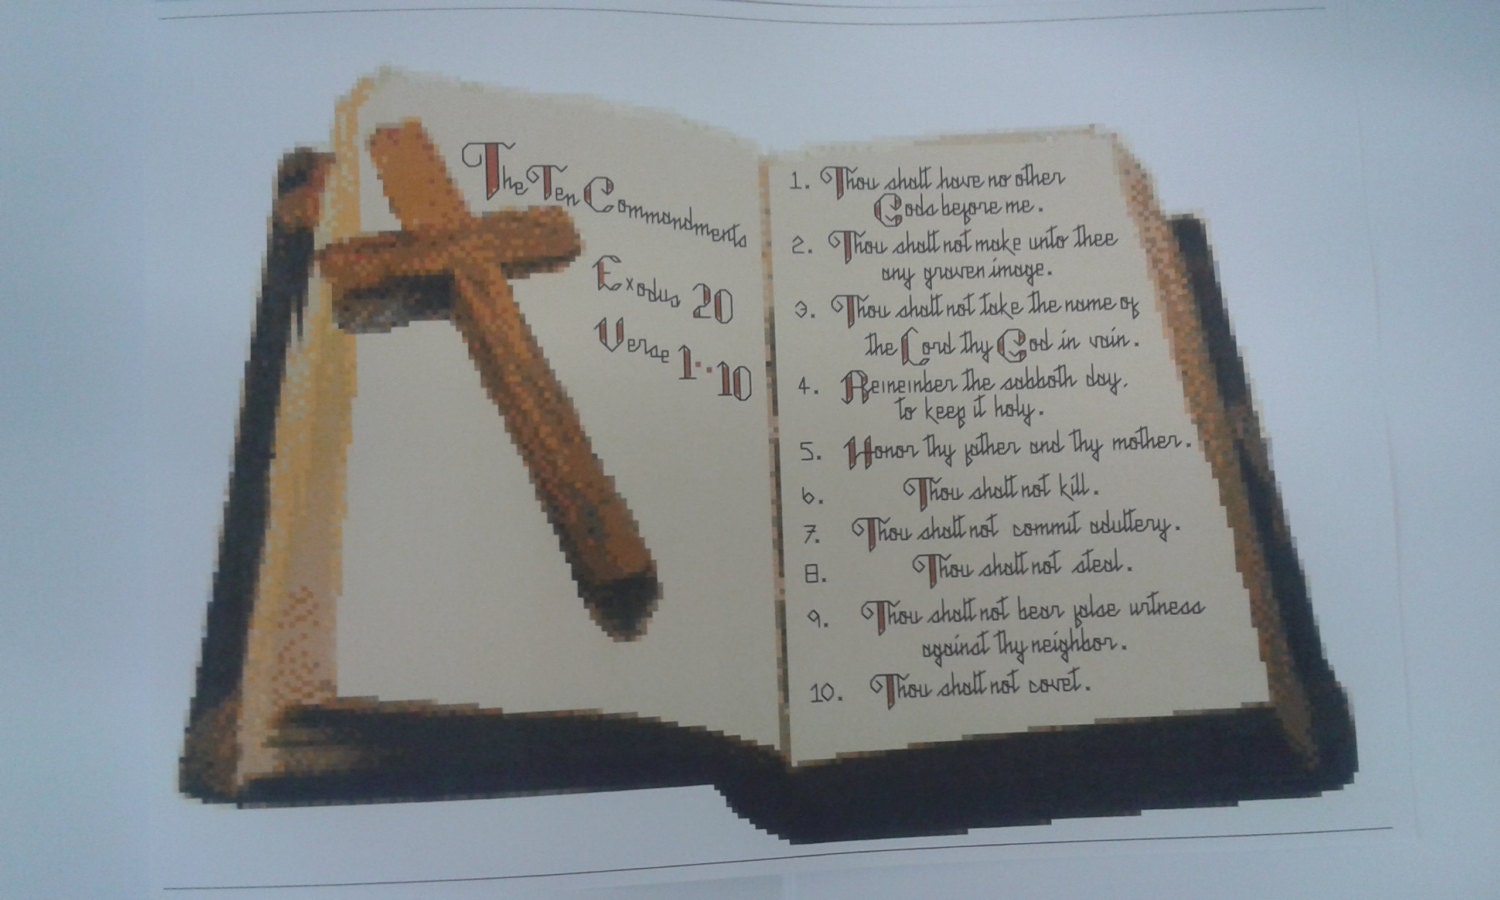 The Ten Commandments
Exodus 20
Verse 1··10
1. Thou shalt have no other
Gods before me.
2. Thou shalt not make unto thee
any graven image.
3. Thou shalt not take the name of
the Lord thy God in vain.
4. Remember the sabbath day,
to keep it holy.
5. Honor thy father and thy mother.
6. Thou shalt not kill.
7. Thou shalt not commit adultery.
8. Thou shalt not steal.
9. Thou shalt not bear false witness
against thy neighbor.
10. Thou shalt not covet.